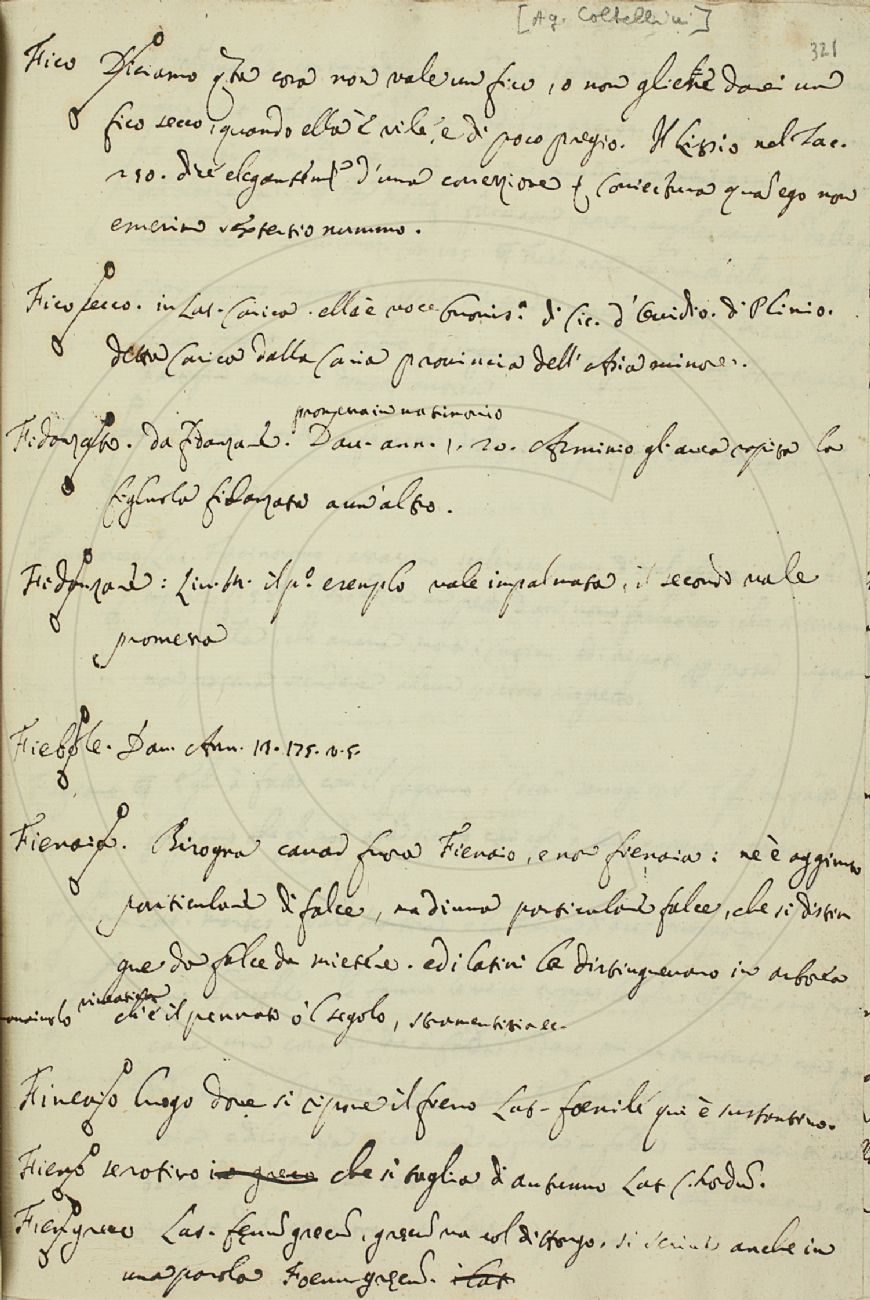 [Ag. Coltellini]
321
Fico Diciamo q.ta cosa non vale un fico, o non gliene darei un
fico secco, quando ella è vile, e di poco pregio. Il Lipsio nel Tac.
250. dice elegantem.te d'una correzione coniectura quā ego non
emerim sestertio nummo.
Fico secco. in Lat. Carica. ella è voce buonis.a di Cic. d'Ovidio. di Plinio.
detta Carica dalla Caria provincia dell'Asia minore.
promessa in matrimonio
Fidanzata. da fidanzare. Dav. ann. 1. 20. Arminio gl'avea rapita la
figliuola fidanzata a un'altro.
Fidanzare: il p.o esemplo vale impalmata, il secondo vale
promessa
Fiebole. Dav. Ann. 175. v. 5.
Fienaia. Bisogna cavar fuora Fienaio, e non fienaia: ne è aggiunto
particulare di falce, ma di una particulare falce, che si distin
gue da falce da mietere. ed i latini la distinguevano in arborea
ch'è il pennato o 'l segolo, stramentitia ec.
Fienaio luogo dove si ripone il fieno Lat. foenile qui è sustantivo.
Fieno serotino che si taglia di autunno Lat. Chordū.
Fiengreco Lat. fęnū grecū, grecū ma col dittongo. si scrive anche in
una parola Foenugręcū. i Lat